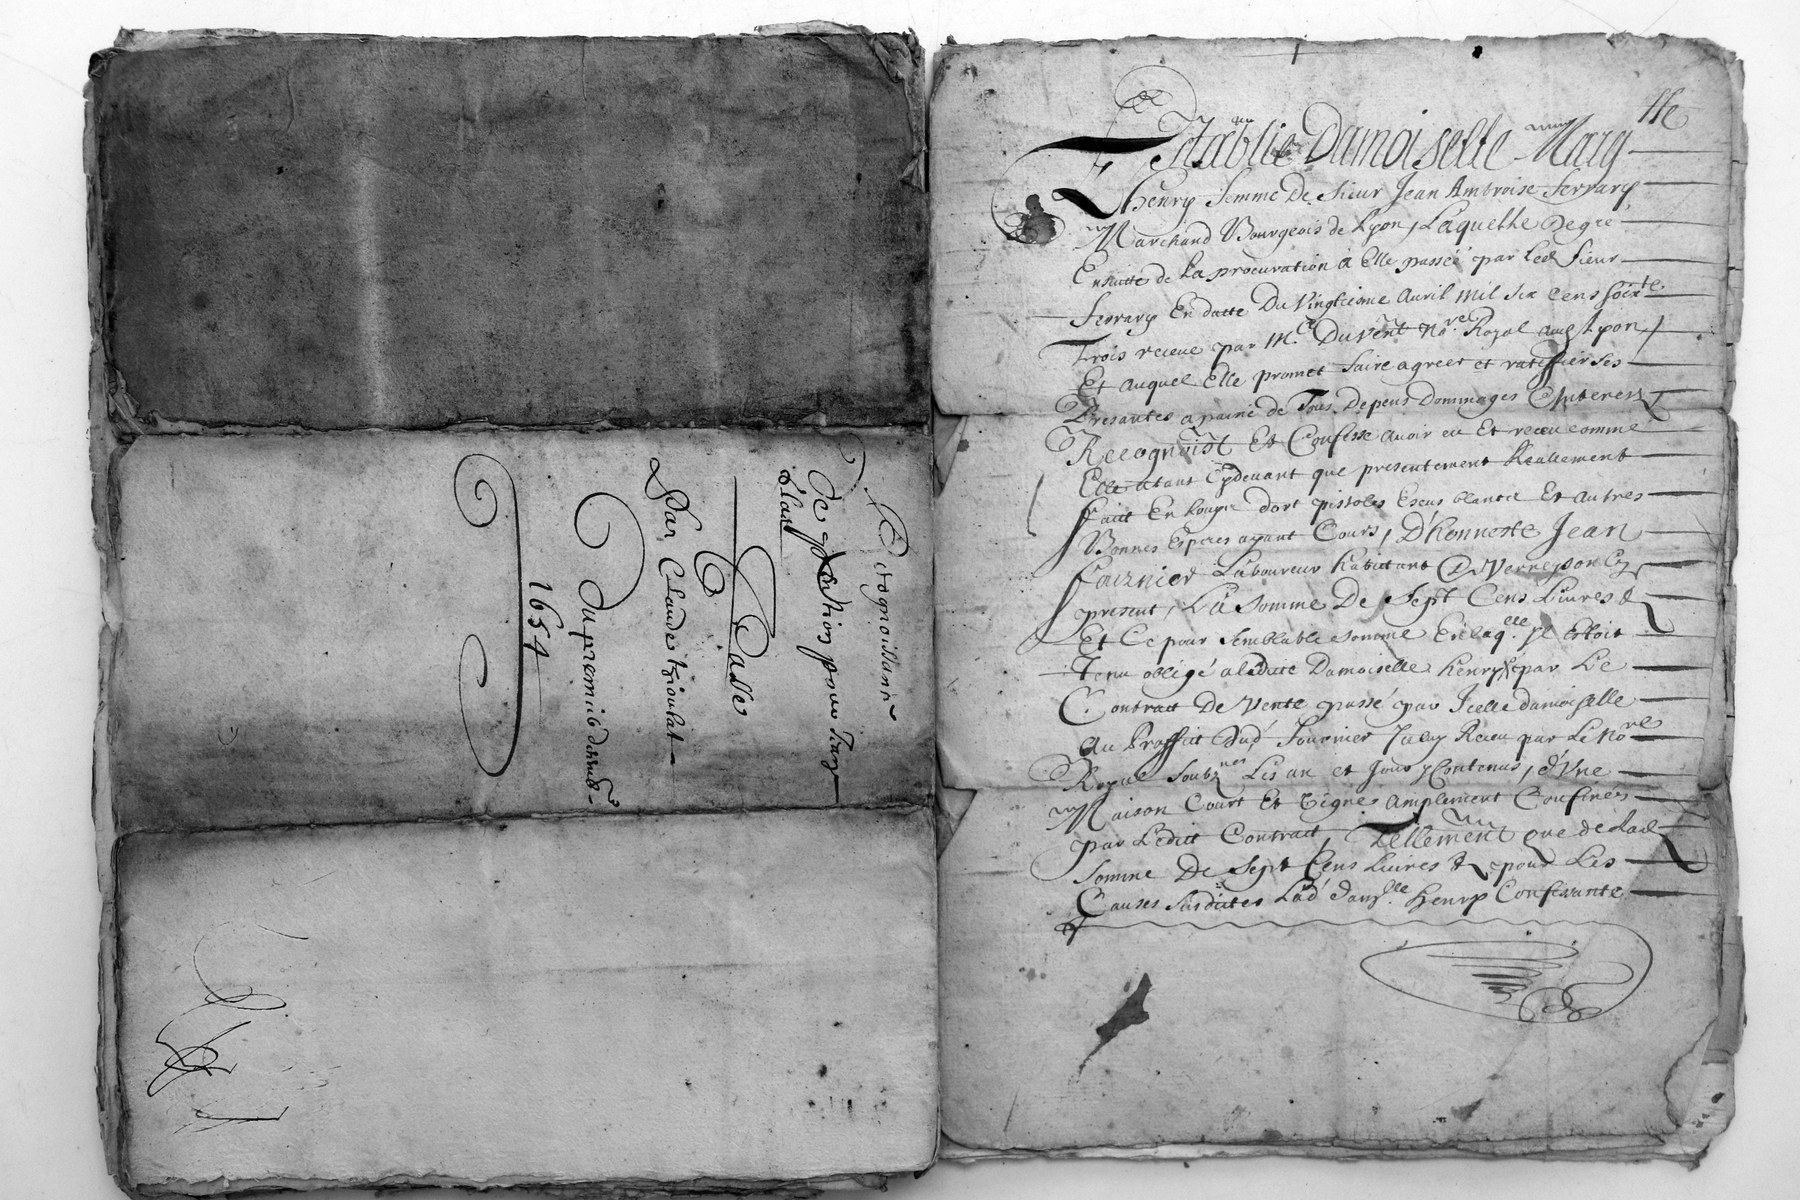 Recognoissance
de portion pour Jean
blanc
Palle
Par Claude
du premier d'aoust
1654
Establie Damoiselle Marg^tte
henry femme De Sieur Jean Ambroise ferrary
Marchand Bourgeois de Lyon, Laquelle de gré
Ensuitte de La procuration à Elle passée par led Sieur
ferrary En datte Du Vingtiesme avril mil six cens soix^te
Trois receue par M^e Duvent No^re Royal aud Lyon,
Et auquel Elle promet faire agreer et ratiffier ses
Presantes a peine de Tous Depens Dommages Interestz
Recognoist Et Confesse avoir eu Et receu comme
Elle a tant Cydevant que presentement Reallement
fait En Louyx dort pistoles Escus blancz Et autres
Bonnes Especes ayant Cours, D'honneste Jean
fournier Laboureur habitant Cy
present, La Somme De Sept Cens Livres &
Et Ce pour semblable somme En laq^lle Il Estoit
Tenu obligé a ladite Damoiselle henry par Le
Contract De Vente passé par Icelle damoiselle
Au Proffit dud' fournier Receu par Le No^re
Royal Soubz^né Les an et Jour y Contenus, d'Vne
Maison Court Et Vigne amplement Confinés
par Ledit Contract, Tellement que de Lad
Somme De Sept Cens Livres & pour Les
Causes Susdites Lad' dam^lle henry Confessante